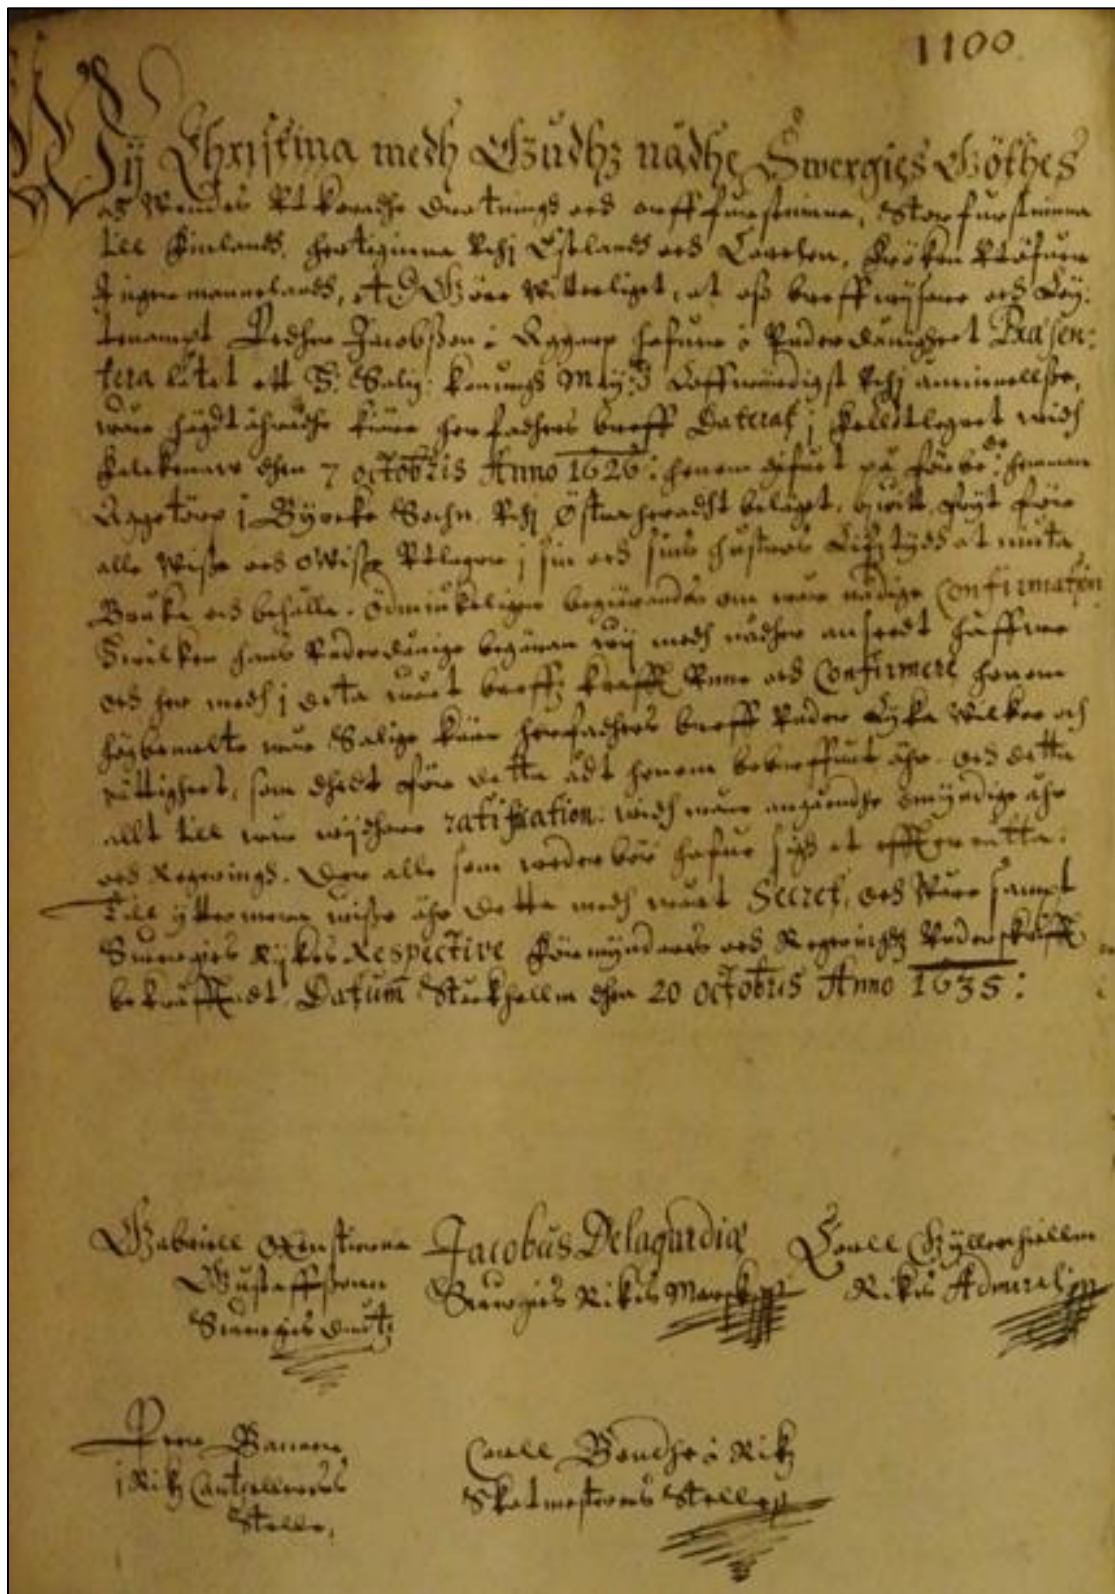 1100
Wij Christina medh Gudhz nådhe, Swergies Göthes
och Wendes Uthkoradhe Drotningh och arffförstinna, Storförstinna
till Finlandh, hertiginna uthj Estlandh och Carelen, fröken öfwer
Ingermannelandh, Giöre Witterligit, at oss breffwijsare och Leü:
tenampt Pedher Jacobsson i hafwer i Underdånigheet Præsen:
tera låtet ett S: Salig: Konungh May:tz Loffwürdigst uthj åminnellsse,
wår högdtährade käre herfadhers breff Daterat j felldtlegret widh
dhen 7 octobris Anno 1626: honom gifwet på hemman
Aggetörp j Byrcke Sochn uthj Östraheradt belägit, qwitt frijt för
alle Wisse och oWisse Utlagor j sin och sins hustros Lifztijdh at niuta
Bruka och behålla. Ödmiukeligen begärandes om wår nådige Confirmation
Hwilken hans Underdånige begäran wij medh nådher anseedt haffwe
och her medh j detta wårt breffz krafft Unne och Confirmere honom
högbemelte wår Salige käre herfadhers breff Under Lijka Wilkor och
rättigheet, som dhedt för detta ådt honom bebreffwat ähr. och detta
allt till wår wijdhare ratification: widh wåre omyndige åhr
och Regeringh. Der alle som wederbör hafwe sigh at effterrätta:
Till yttermera wisse ähr detta medh wårt Secret, och Wåre sampt
Swerigies Rijkes Respective Förmyndares och Regeringhz Underskrifft
bekräfftadt. Datum Stockhollm dhen 20 octobris Anno 1635:
Gabriell Oxenstierna
Gustaffsonn
Swerigies Drotz
Jacobus Delagardiæ
Swerigies Rikes Marsk
Carll Gyllenhiellm
Rikes Admiral
Peer Banner
j Rikz Cantzellerens
Stelle,
Carll Bondhe i Rikz
Skatmesterens Stelle